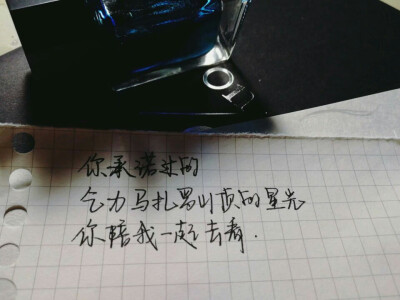 你承诺过的
乞力马扎罗山顶的星光
你陪我一起去看.